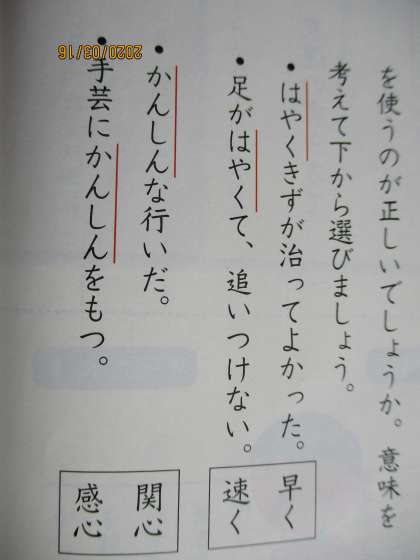 を使うのが正しいでしょうか。意味を
考えて下から選びましょう。
・はやくきずが治ってよかった。
・足がはやくて、追いつけない。
早く
速く
・かんしんな行いだ。
・手芸にかんしんをもつ。
関心
感心
2020/03/16